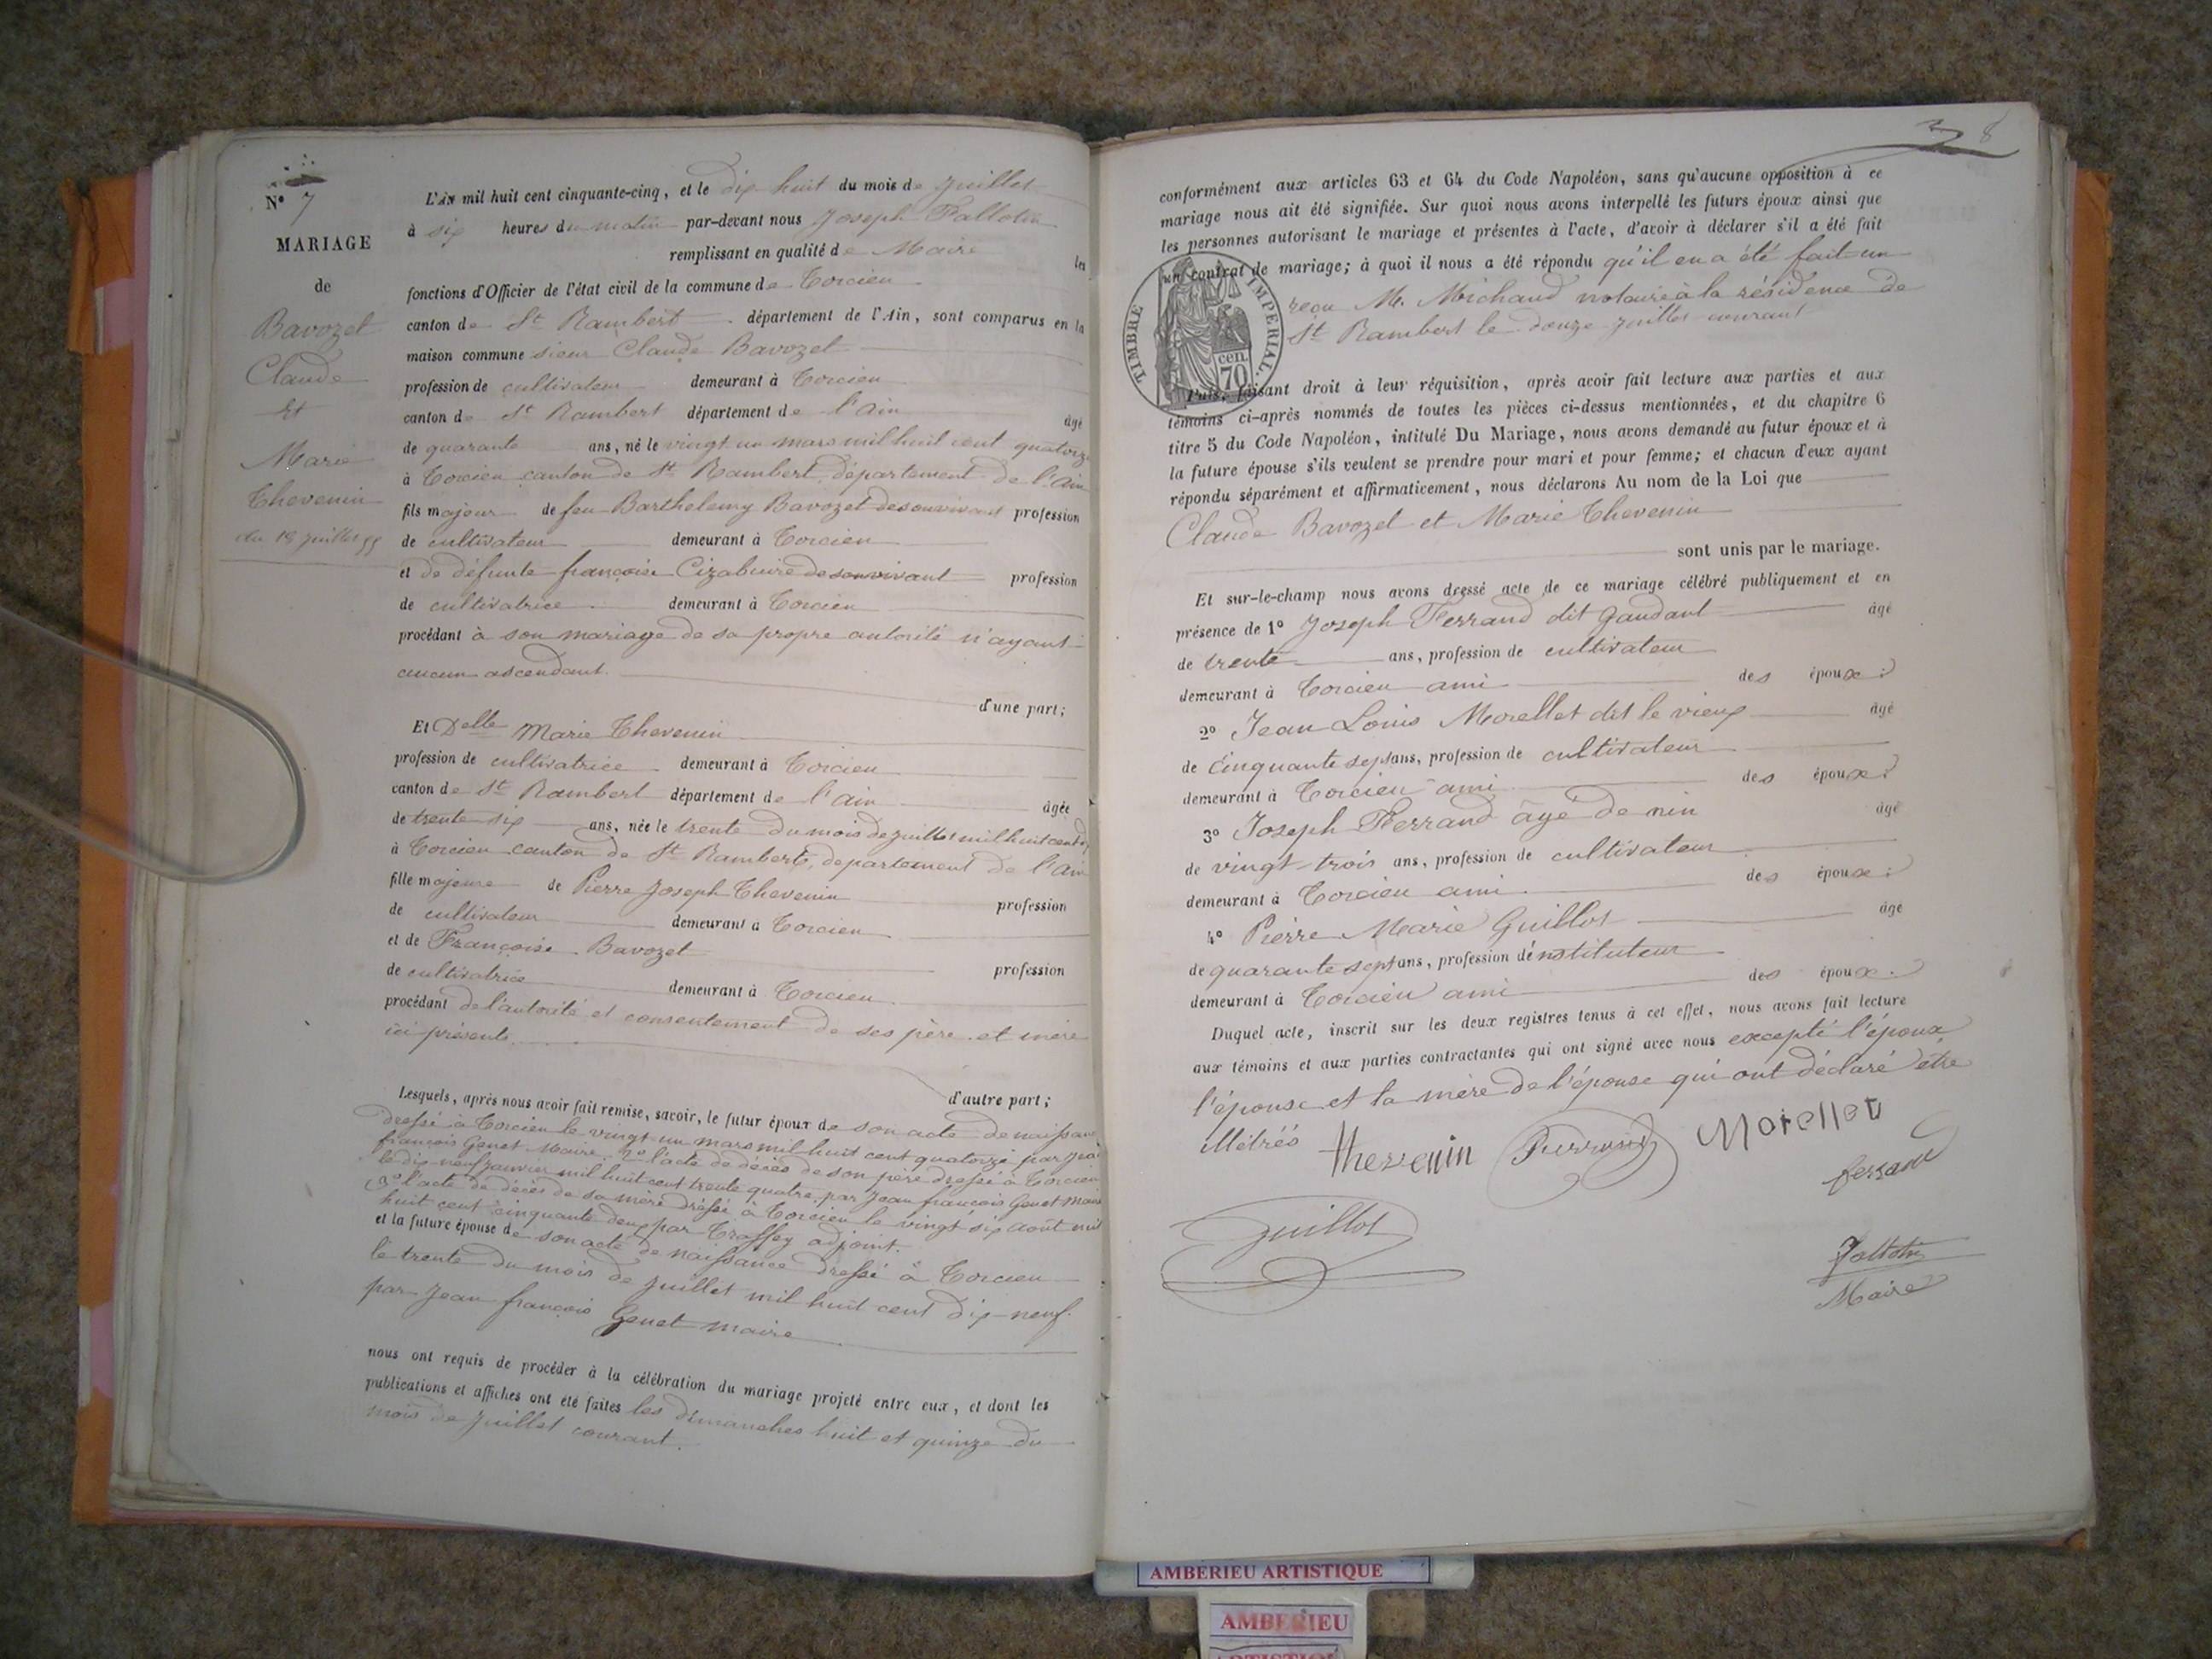 N° 7
MARIAGE
de
Bavozet
Claude
Et
Marie
Thevenin
du 18 juillet 55
L'An mil huit cent cinquante-cinq, et le dix huit du mois de juillet
à six heures du matin par-devant nous Joseph
remplissant en qualité de Maire les
fonctions d'Officier de l'état civil de la commune de Torcieu
canton de St Rambert département de l'Ain, sont comparus en la
maison commune sieur Claude Bavozet
profession de cultivateur demeurant à Torcieu
canton de St Rambert département de l'Ain âgé
de quarante ans, né le vingt un mars mil huit cent quatorze
à Torcieu canton de St Rambert, département de l'Ain
fils majeur de feu Barthelemy Bavozet de son vivant profession
de cultivateur demeurant à Torcieu
et de défunte françoise de son vivant profession
de cultivatrice demeurant à Torcieu
procédant à son mariage de sa propre autorité n'ayant
aucun ascendant.
d'une part;
Et Delle Marie Thevenin
profession de cultivatrice demeurant à Torcieu
canton de St Rambert département de l'ain âgée
de trente six ans, née le trente du mois de juillet mil huit cent
à Torcieu canton de St Rambert, departement de l'Ain
fille majeure de Pierre Joseph Thevenin profession
de cultivateur demeurant à Torcieu
et de Françoise Bavozet profession
de cultivatrice demeurant à Torcieu
procédant de l'autorité et consentement de ses père et mère
ici présents
d'autre part;
Lesquels, après nous avoir fait remise, savoir, le futur époux de son acte de naissance
dressé à Torcieu le vingt un mars mil huit cent quatorze par Jean
françois Genet Maire. 2° l'acte de décès de son père dressé à Torcieu
le dix neuf janvier mil huit cent trente quatre par Jean françois Genet Maire
3° l'acte de décès de sa mère dressé à Torcieu le vingt six août mil
huit cent cinquante deux par adjoint.
et la future épouse de son acte de naissance dressé à Torcieu
le trente du mois de juillet mil huit cent dix neuf.
par Jean françois Genet maire
nous ont requis de procéder à la célébration du mariage projeté entre eux, et dont les
publications et affiches ont été faites les dimanches huit et quinze du
mois de juillet courant.
8
conformément aux articles 63 et 64 du Code Napoléon, sans qu'aucune opposition à ce
mariage nous ait été signifiée. Sur quoi nous avons interpellé les futurs époux ainsi que
les personnes autorisant le mariage et présentes à l'acte, d'avoir à déclarer s'il a été fait
un contrat de mariage; à quoi il nous a été répondu qu'il en a été fait un
reçu M. Michaud notaire à la résidence de
St Rambert le douze juillet courant
TIMBRE IMPERIAL.
70 cen.
Puis, faisant droit à leur réquisition, après avoir fait lecture aux parties et aux
témoins ci-après nommés de toutes les pièces ci-dessus mentionnées, et du chapitre 6
titre 5 du Code Napoléon, intitulé Du Mariage, nous avons demandé au futur époux et à
la future épouse s'ils veulent se prendre pour mari et pour femme; et chacun d'eux ayant
répondu séparément et affirmativement, nous déclarons Au nom de la Loi que
Claude Bavozet et Marie Thevenin
sont unis par le mariage.
Et sur-le-champ nous avons dressé acte de ce mariage célébré publiquement et en
présence de 1° Joseph Ferrand dit Gaudant âgé
de trente ans, profession de cultivateur
demeurant à Torcieu ami des époux;
2° Jean Louis Morellet dit le vieux âgé
de Cinquante sept ans, profession de cultivateur
demeurant à Torcieu ami des époux;
3° Joseph Ferrand âgé de âgé
de vingt trois ans, profession de cultivateur
demeurant à Torcieu ami des époux;
4° Pierre Marie Guillot âgé
de quarante sept ans, profession d'instituteur
demeurant à Torcieu ami des époux.
Duquel acte, inscrit sur les deux registres tenus à cet effet, nous avons fait lecture
aux témoins et aux parties contractantes qui ont signé avec nous excepté l'époux
l'épouse et la mère de l'épouse qui ont déclaré être
illétrés
thevenin
Morellet
ferrand
Guillot
Maire
AMBERIEU ARTISTIQUE
AMBERIEU
ARTISTIQUE